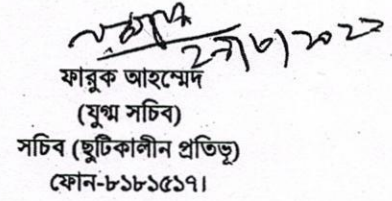 ফারুক আহম্মেদ
(যুগ্ম সচিব)
সচিব (ছুটিকালীন প্রতিভূ)
ফোন-৮১৮১৫১৭।